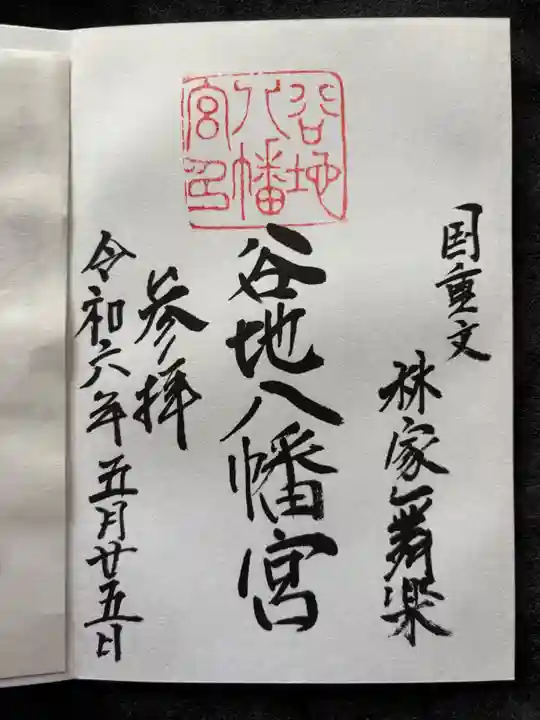 国重文
林家舞楽
谷地八幡宮
谷地八幡宮印
参拝
令和六年五月廿五日